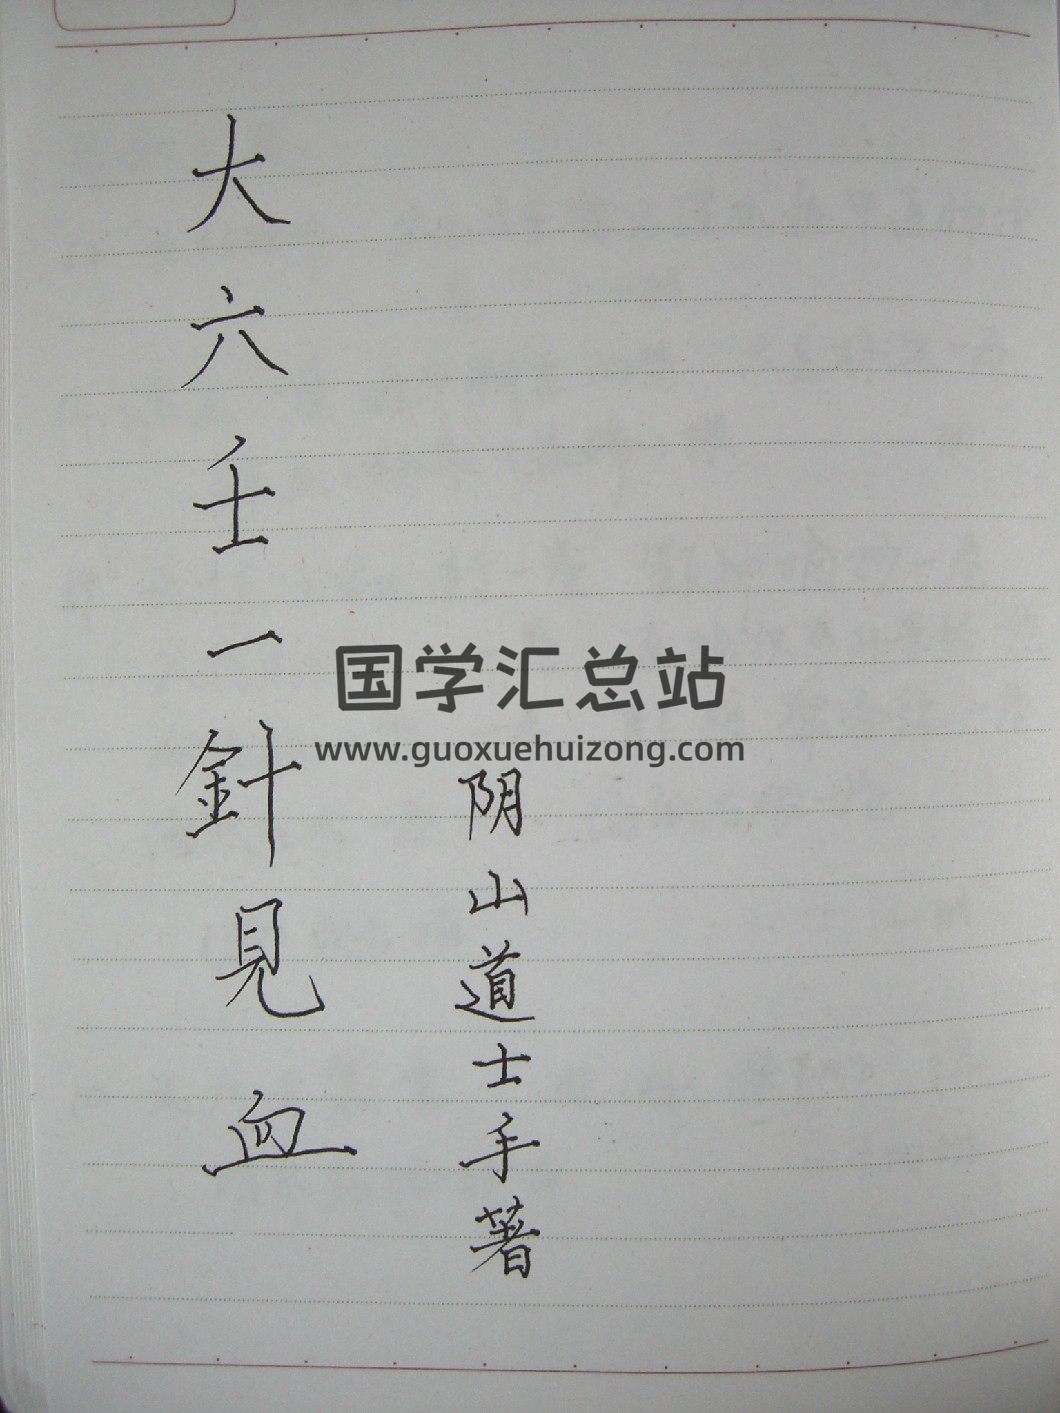 大六壬一針見血
国学汇总站
www.guoxuehuizong.com
阴山道士手著